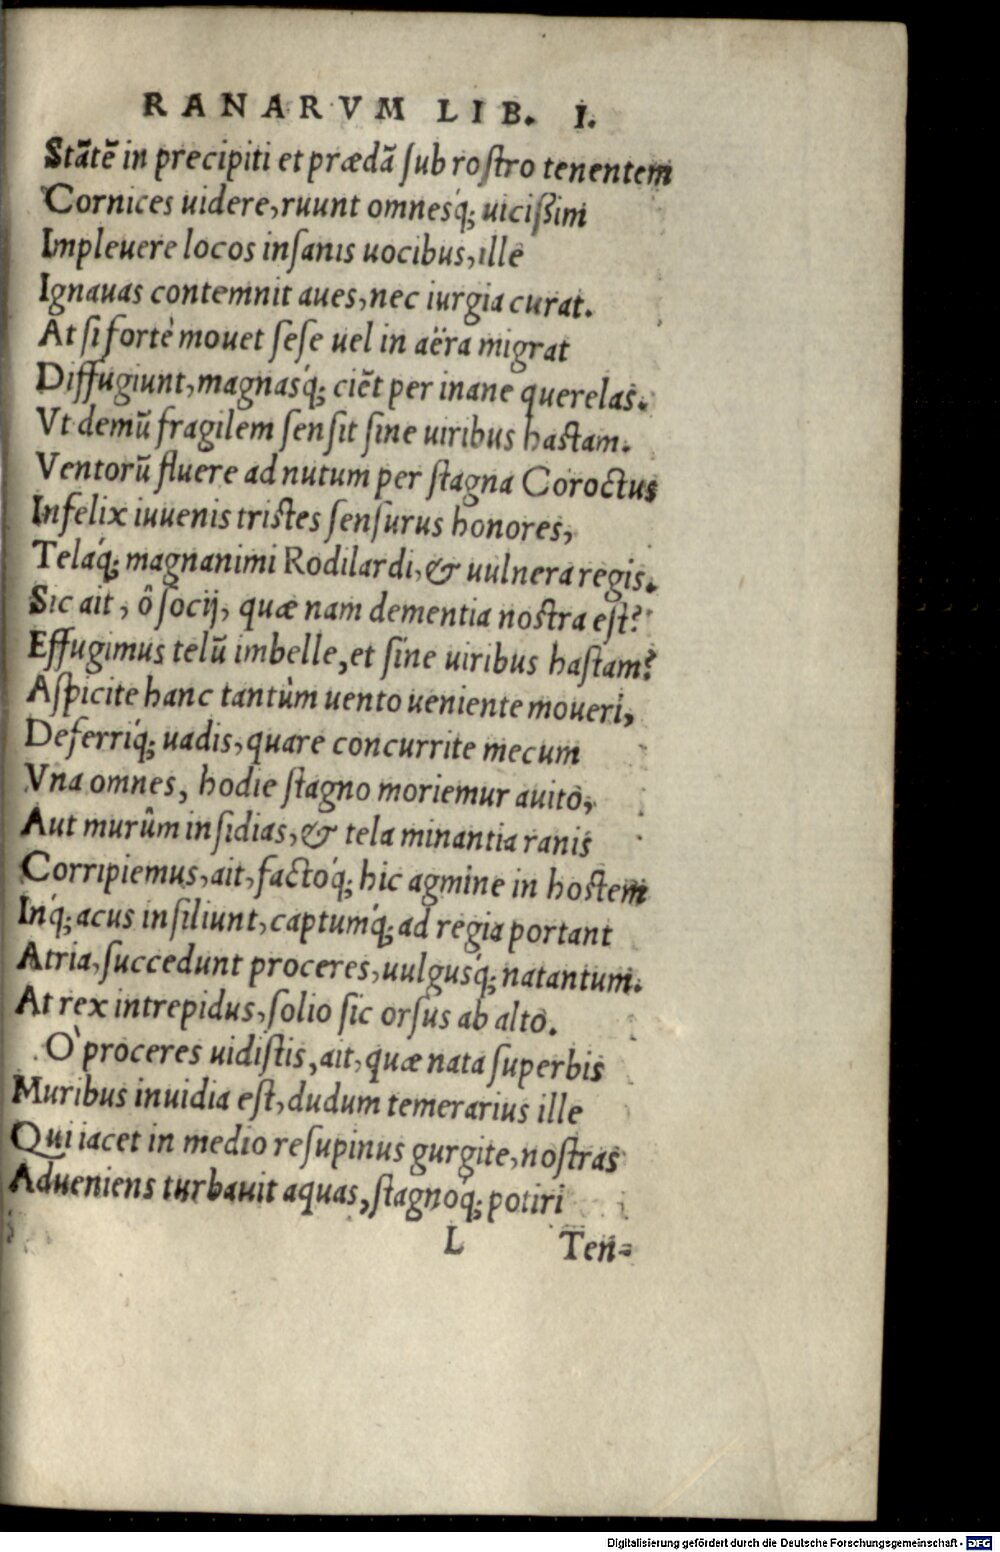 RANARVM LIB. I.
Stãtẽ in precipiti et prædã ſub roſtro tenentem
Cornices uidere, ruunt omnesq́; uicißim
Impleuere locos inſanis uocibus, ille
Ignauas contemnit aues, nec iurgia curat.
At ſi fortè mouet ſeſe uel in aëra migrat
Diffugiunt, magnasq́; ciẽt per inane querelas.
Vt demũ fragilem ſenſit ſine uiribus haſtam.
Ventorũ fluere ad nutum per ſtagna Coroctus
Infelix iuuenis triſtes ſenſurus honores,
Telaq́; magnanimi Rodilardi, & uulnera regis.
Sic ait, ô ſocij, quæ nam dementia noſtra eſt?
Effugimus telũ imbelle, et ſine uiribus haſtam?
Aſpicite hanc tantùm uento ueniente moueri,
Deferriq́; uadis, quare concurrite mecum
Vna omnes, hodie ſtagno moriemur auito,
Aut murûm inſidias, & tela minantia ranis
Corripiemus, ait, factoq́; hic agmine in hoſtem
Inq́; acus inſiliunt, captumq́; ad regia portant
Atria, ſuccedunt proceres, uulgusq́; natantum.
At rex intrepidus, ſolio ſic orſus ab alto.
O` proceres uidiſtis, ait, quæ nata ſuperbis
Muribus inuidia eſt, dudum temerarius ille
Qui iacet in medio reſupinus gurgite, noſtras
Adueniens turbauit aquas, ſtagnoq́; potiri
L Ten-
Digitalisierung gefördert durch die Deutsche Forschungsgemeinschaft - DFG